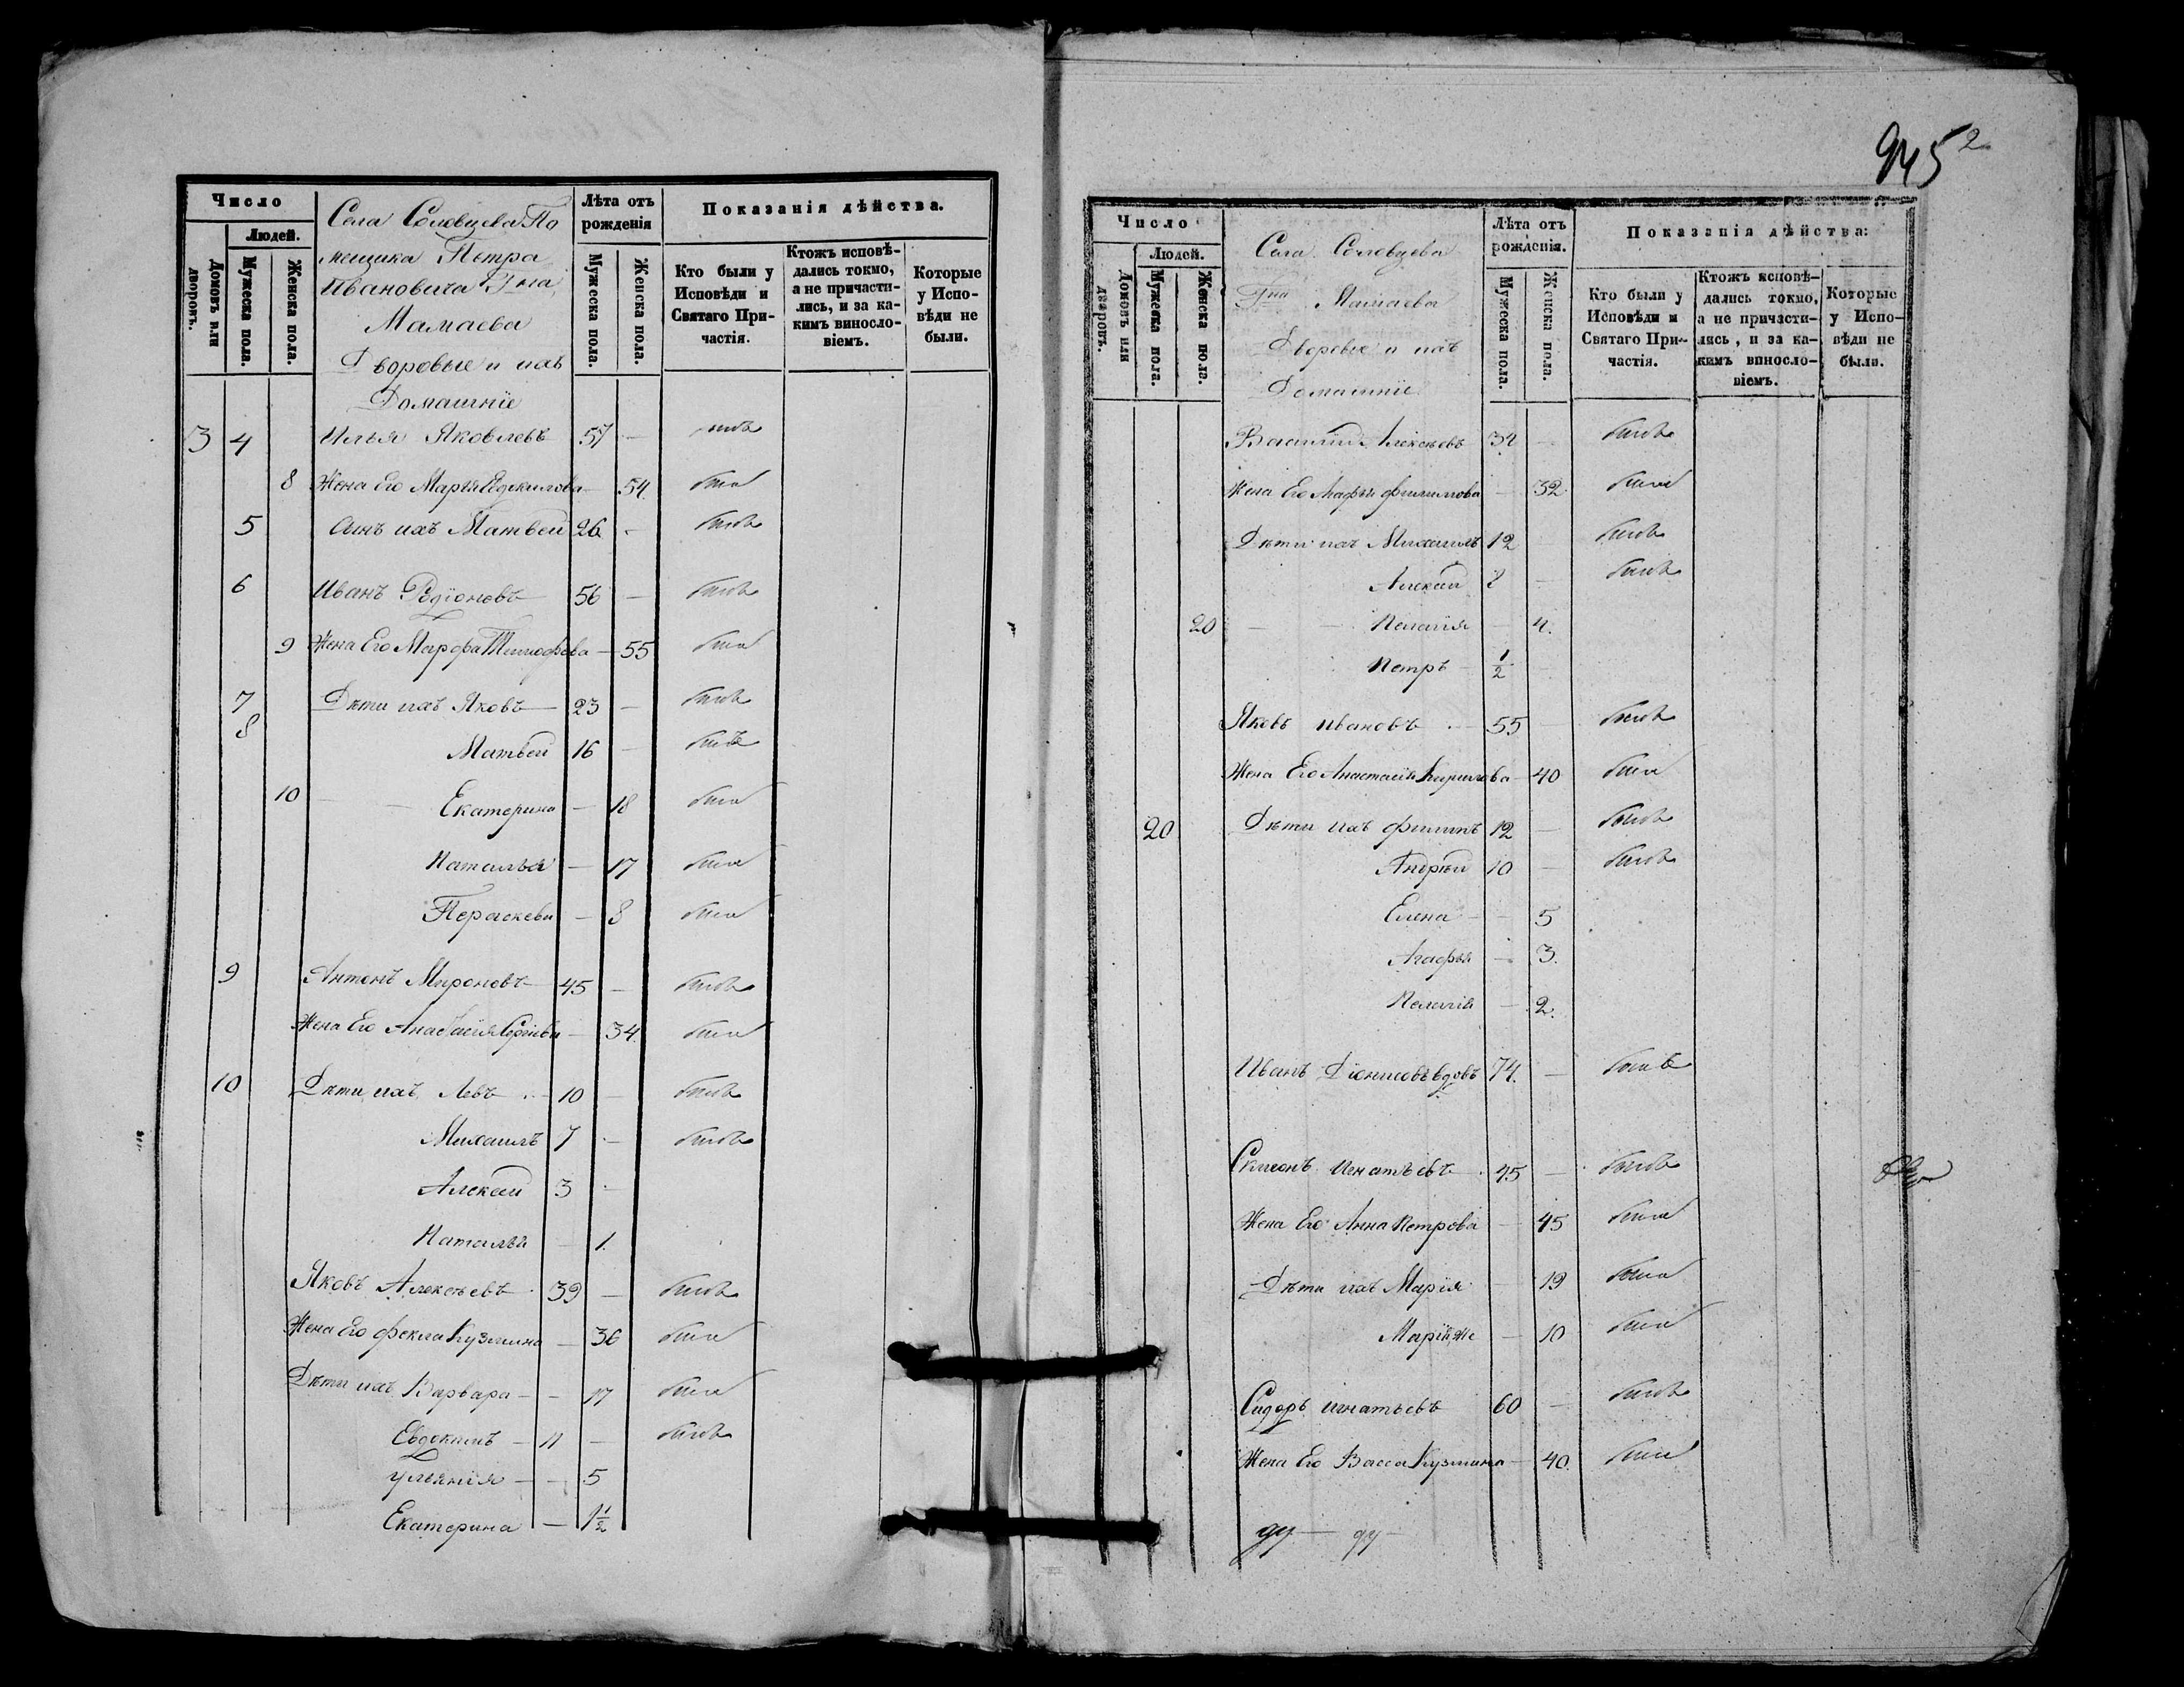 Число
Людей.
Домовъ или дворовъ.
Мужеска пола.
Женска пола.
Села Соловцева По
мещика Петра
Ивановича Гна
Мамаева
Дворовые и ихъ
Домашніе
Лѣта отъ рожденія
Мужеска пола.
Женска пола.
Показанія дѣйства.
Кто были у Исповѣди и Святаго Причастія.
Ктожъ исповѣдались токмо, а не причастились, и за какимъ винословіемъ.
Которые у Исповѣди не были.
3 4 Илья Яковлевъ 57 — былъ
8 Жена Его Марья — 54. была
5 Сынъ ихъ Матвей 26 - былъ
6 Иванъ Родіоновъ 56 — былъ
9 Жена Его Марфа Тимофѣева — 55 была
7 Дѣти ихъ Яковъ — 23 — былъ
8 Матвей 16 — былъ
10 — — Екатерина — 18 была
Наталья — 17 была
Пераскева — 8 была
9 Антонъ Мироновъ — 45 — былъ
Жена Его — 34. была
10 Дѣти ихъ Левъ 10 — былъ
Михаилъ 7 - былъ
Алексей 3 -
Наталья — 1.
Яковъ Алексѣевъ 39 — былъ
Жена Его Фекла Кузмина — 36 была
Дѣти ихъ Варвара — - 17 была
Евдокимъ — 11 — былъ
Ульянія — - 5
Екатерина — 1 1/2
945 2
Число
Людей.
Домовъ или дворовъ.
Мужеска пола.
Женска пола.
Села Соловцева
Гна Мамаева
Дворовые и ихъ
Домашніе
Лѣта отъ рожденія.
Мужеска пола.
Женска пола.
Показанія дѣйства:
Кто были у Исповѣди и Святаго Причастія.
Ктожъ исповѣдались токмо, а не причастились, и за какимъ винословіемъ.
Которые у Исповѣди не были.
Василій Алексѣевъ 32 — былъ
Жена Его Агафья Филипова — 32 была
Дѣти ихъ Михаилъ 12 былъ
Алексей 8 — былъ
20 — — Пелагія — 4.
Петръ — 1/2 —
Яковъ Ивановъ — 55 — былъ
Жена Его Анастасія Кирилова — 40 была
20 Дѣти ихъ Филипъ 12 — былъ
Андрей 10 — былъ
Елена — - 5
Агафья — 3.
Пелагія — 2.
Иванъ Діонисовъ вдовъ 74. — былъ
Семеонъ Игнатьевъ 45 — былъ
Жена Его Анна Петрова — 45 была
Дѣти ихъ Марія — 19 была
Марія же — 10 была
Сидоръ Игнатьевъ 60 — былъ
Жена Его Васса Кузмина — 40. была